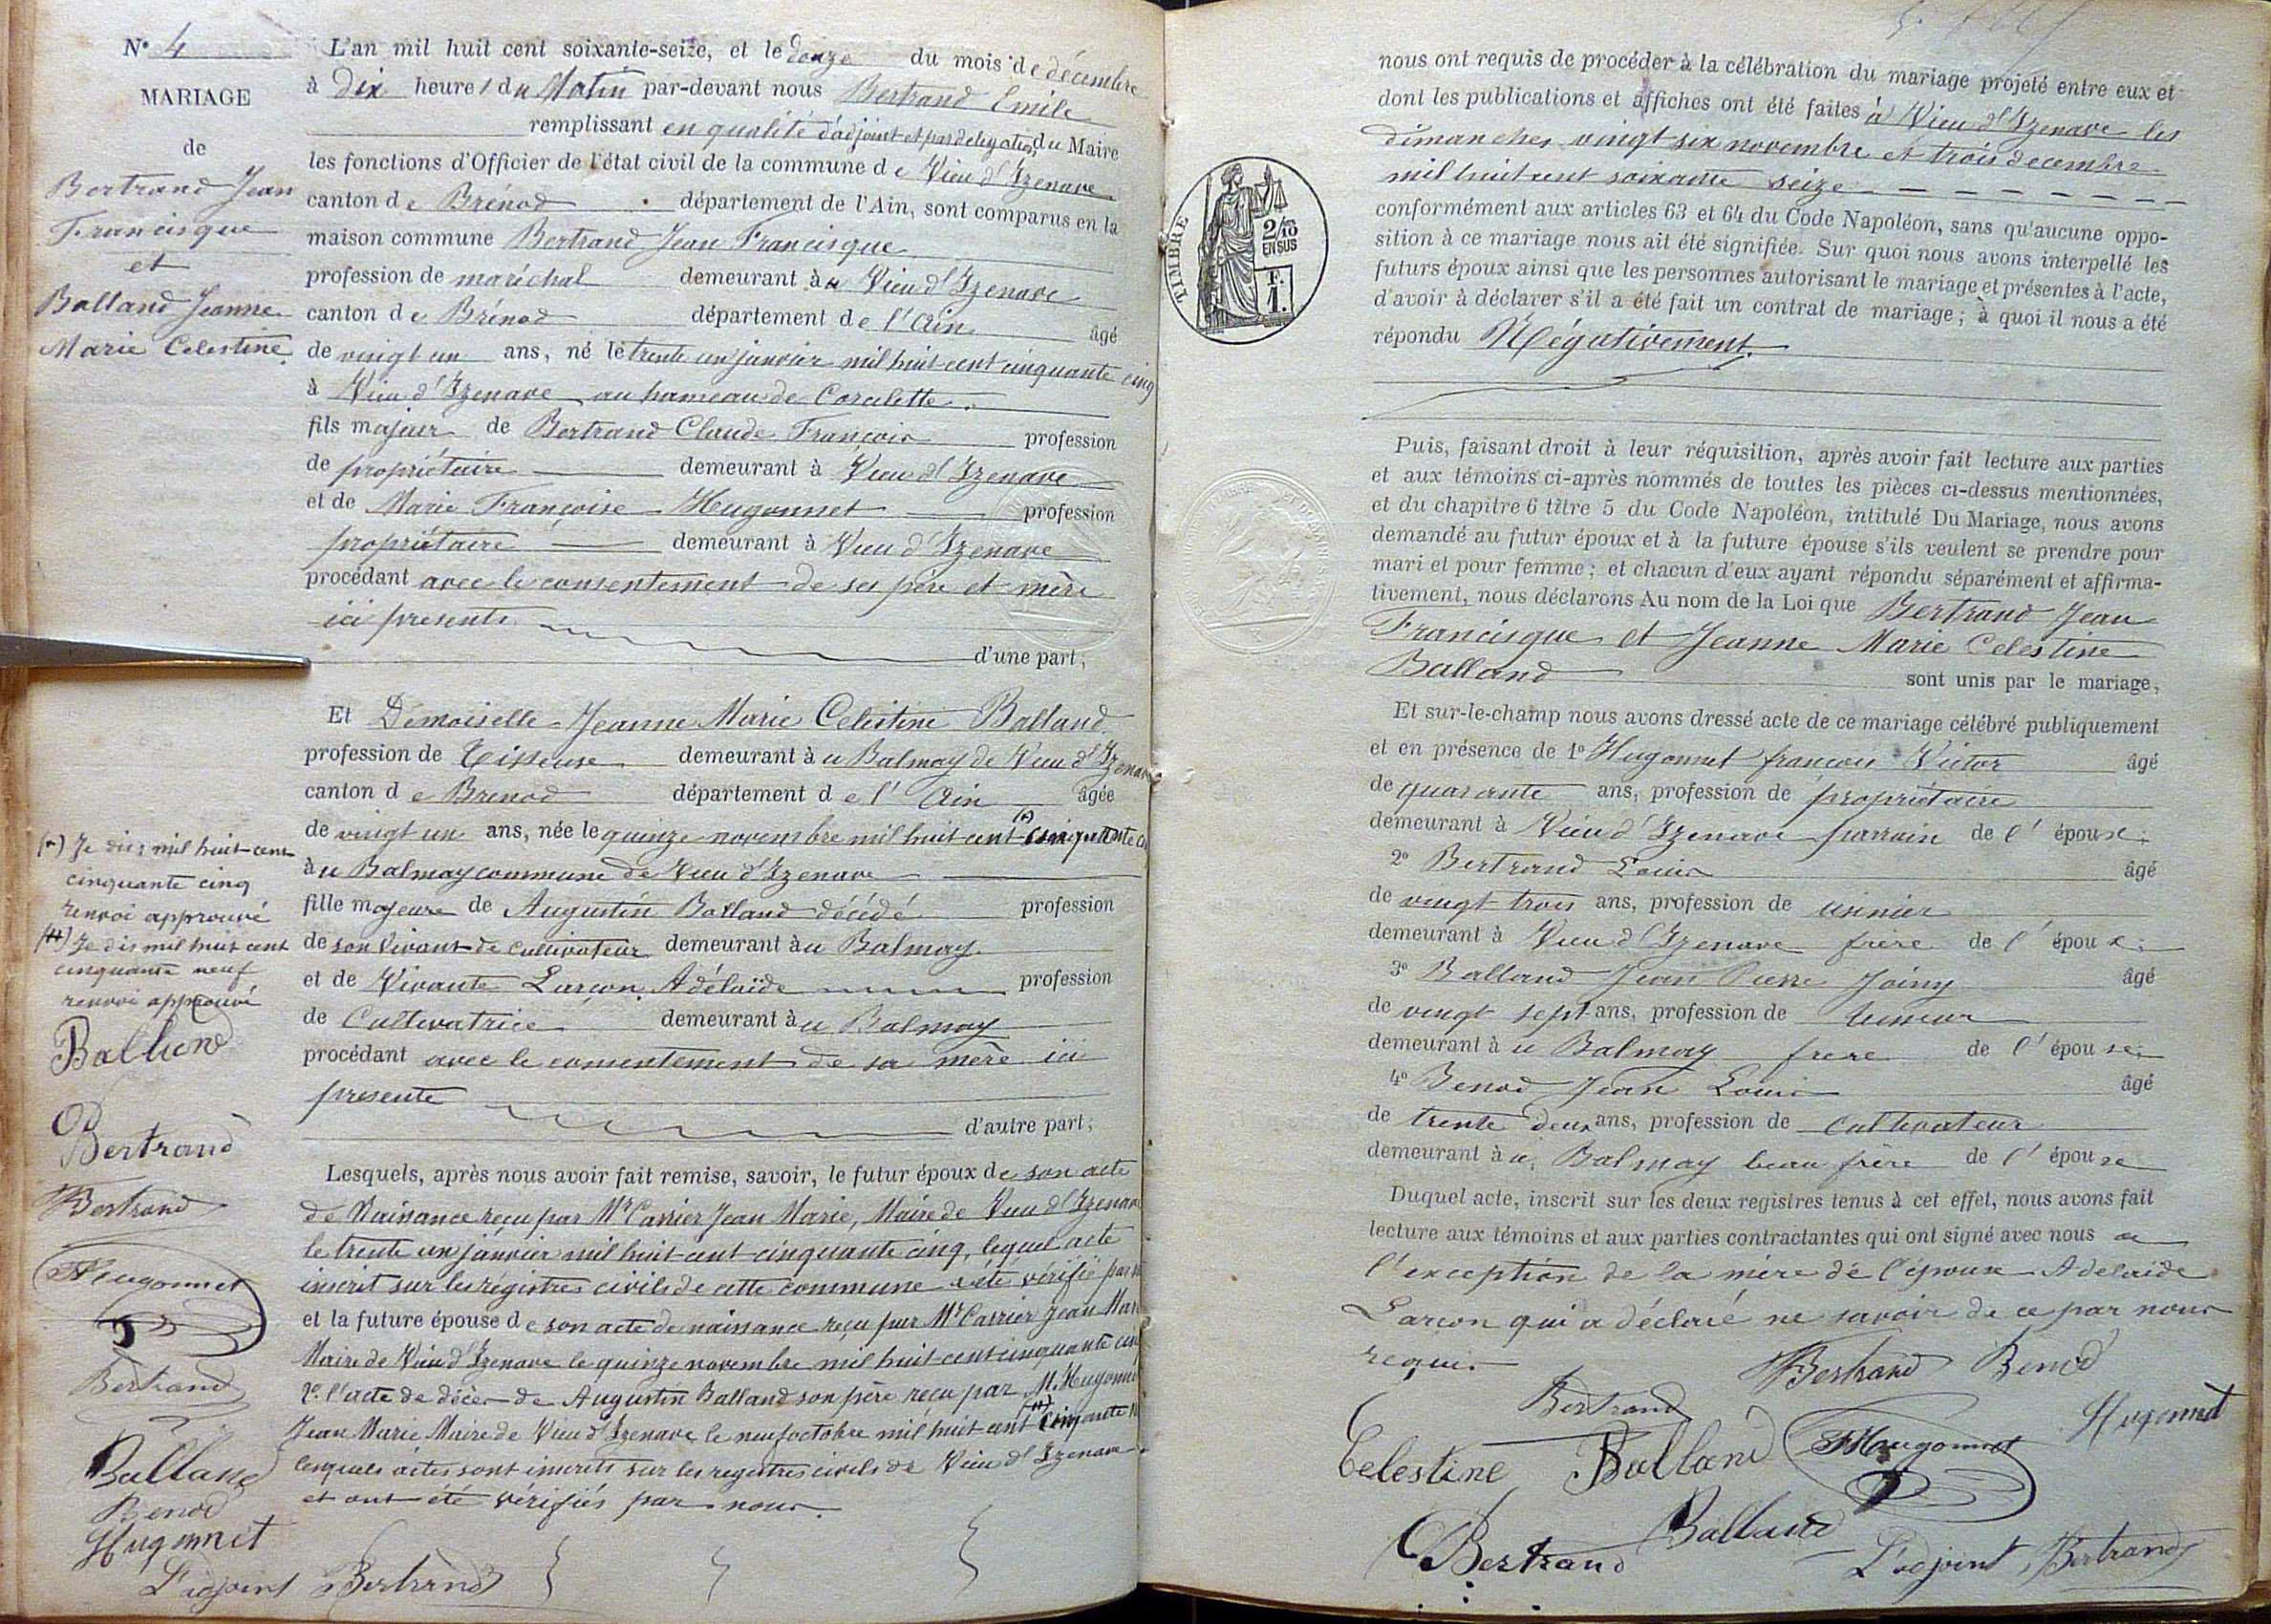 N° 4
MARIAGE
de
Bertrand Jean
Francisque
et
Balland Jeanne
Marie Celestine
L'an mil huit cent soixante-seize, et le douze du mois de décembre
à Dix heures du Matin par-devant nous Bertrand Emile
remplissant en qualité d'adjoint et par délégation du Maire
les fonctions d'Officier de l'état civil de la commune de Vieu d'Izenave
canton de Brénod département de l'Ain, sont comparus en la
maison commune Bertrand Jean Francisque
profession de maréchal demeurant à Vieu d'Izenave
canton de Brénod département de l'Ain âgé
de vingt un ans, né le trente un janvier mil huit cent cinquante cinq
à Vieu d'Izenave au hameau de Coralette.
fils majeur de Bertrand Claude François profession
de propriétaire demeurant à Vieu d'Izenave
et de Marie Françoise Hugonnet profession
propriétaire demeurant à Vieu d'Izenave
procédant avec le consentement de ses père et mère
ici présents
d'une part;
Et Demoiselle Jeanne Marie Celestine Balland
profession de Tisseuse demeurant à u Balmay de Vieu d'Izenave
canton de Brenod département de l'Ain âgée
de vingt un ans, née le quinze novembre mil huit cent (*) cinquante
à u Balmay commune de Vieu d'Izenave
fille majeure de Augustin Balland décédé profession
de son vivant de cultivateur demeurant à u Balmay
et de Vivante Larçon Adélaïde profession
de Cultivatrice demeurant à u Balmay
procédant avec le consentement de sa mère ici
presente
d'autre part;
(*) Je dis mil huit cent
cinquante cinq
renvoi approuvé
(#) Je dis mil huit cent
cinquante neuf
renvoi approuvé
Balland
Bertrand
Bertrand
Hugonnet
Bertrand
Balland
Benod
Hugonnet
L'adjoint Bertrand
Lesquels, après nous avoir fait remise, savoir, le futur époux de son acte
de Naissance reçu par Mr Carrier Jean Marie, Maire de Vieu d'Izenave
le trente un janvier mil huit cent cinquante cinq, lequel acte
inscrit sur les régistres civils de cette commune a été vérifié par
et la future épouse de son acte de naissance reçu par Mr Carrier Jean Mar
Maire de Vieu d'Izenave le quinze novembre mil huit cent cinquante cinq
2° l'acte de décès de Augustin Balland son père reçu par M. Hugonnet
Jean Marie Maire de Vieu d'Izenave le neuf octobre mil huit cent (#) cinquante
lesquels actes sont inscrits sur les registres civils de Vieu d'Izenave
et ont été vérifiés par nous.
nous ont requis de procéder à la célébration du mariage projeté entre eux et
dont les publications et affiches ont été faites à Vieu d'Izenave les
dimanches vingt six novembre et trois decembre
mil huit cent soixante seize
conformément aux articles 63 et 64 du Code Napoléon, sans qu'aucune oppo-
sition à ce mariage nous ait été signifiée. Sur quoi nous avons interpellé les
futurs époux ainsi que les personnes autorisant le mariage et présentes à l'acte,
d'avoir à déclarer s'il a été fait un contrat de mariage; à quoi il nous a été
répondu Négativement.
TIMBRE
2/10
EN SUS
F.
1.
Puis, faisant droit à leur réquisition, après avoir fait lecture aux parties
et aux témoins ci-après nommés de toutes les pièces ci-dessus mentionnées,
et du chapitre 6 titre 5 du Code Napoléon, intitulé Du Mariage, nous avons
demandé au futur époux et à la future épouse s'ils veulent se prendre pour
mari et pour femme; et chacun d'eux ayant répondu séparément et affirma-
tivement, nous déclarons Au nom de la Loi que Bertrand Jean
Francisque et Jeanne Marie Celestine
Balland sont unis par le mariage,
Et sur-le-champ nous avons dressé acte de ce mariage célébré publiquement
et en présence de 1° Hugonnet françois Victor âgé
de quarante ans, profession de propriétaire
demeurant à Vieu d'Izenave parrain de l'épouse;
2° Bertrand Louis âgé
de vingt trois ans, profession de usinier
demeurant à Vieu d'Izenave frère de l'époux;
3° Balland Jean Pierre Joiny âgé
de vingt sept ans, profession de tisseur
demeurant à u Balmay frere de l'épouse;
4° Benod Jean Louis âgé
de trente deux ans, profession de cultivateur
demeurant à u Balmay beau frère de l'épouse
Duquel acte, inscrit sur les deux registres tenus à cet effet, nous avons fait
lecture aux témoins et aux parties contractantes qui ont signé avec nous a
l'exception de la mère de l'épouse Adelaide
Larçon qui a déclaré ne savoir de ce par nous
requis
Bertrand Benod
Bertrand Hugonnet
Celestine Balland Hugonnet
Bertrand Balland L'adjoint, Bertrand